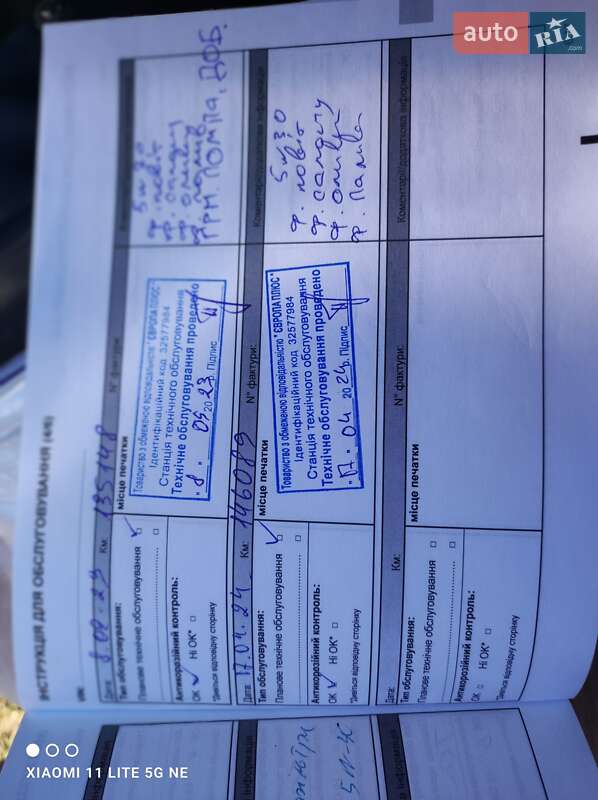 auto RIA.com
ІНСТРУКЦІЯ ДЛЯ ОБСЛУГОВУВАННЯ (4/6)
Дата: 8.02.23 Км: 135148 N° фактури:
Тип обслуговування: місце печатки
Планове технічне обслуговування
Антикорозійний контроль:
OK Ні OK*
*Дивіться відповідну сторінку
Товариство з обмеженою відповідальністю "ЄВРОПА ПЛЮС"
Ідентифікаційний код 32577984
Станція технічного обслуговування
Технічне обслуговування проведено
2023 р. Підпис
5w30
ГРМ. ПОМПА, ДОБ.
Дата: 17.04.24 Км: 146089 N° фактури: Коментарі/додаткова інформація
Тип обслуговування: місце печатки
Планове технічне обслуговування
Антикорозійний контроль:
OK Ні OK*
*Дивіться відповідну сторінку
Товариство з обмеженою відповідальністю "ЄВРОПА ПЛЮС"
Ідентифікаційний код 32577984
Станція технічного обслуговування
Технічне обслуговування проведено
"17" 04 2024р. Підпис
5w30
ф. повіт
ф. салону
ф. оливи
ф. палива
Км: N° фактури: Коментарі/додаткова інформація
Тип обслуговування: місце печатки
Планове технічне обслуговування
Антикорозійний контроль:
OK Ні OK*
*Дивіться відповідну сторінку
XIAOMI 11 LITE 5G NE